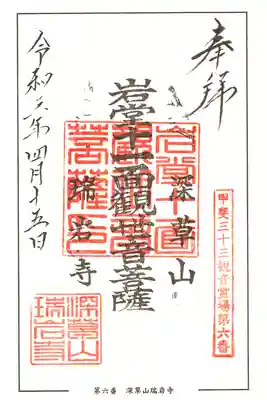 奉拜
甲斐三十三観音霊場第六番
深草山
岩堂十一面観世音菩薩
瑞岩寺
深草山
瑞岩寺
第六番 深草山瑞岩寺